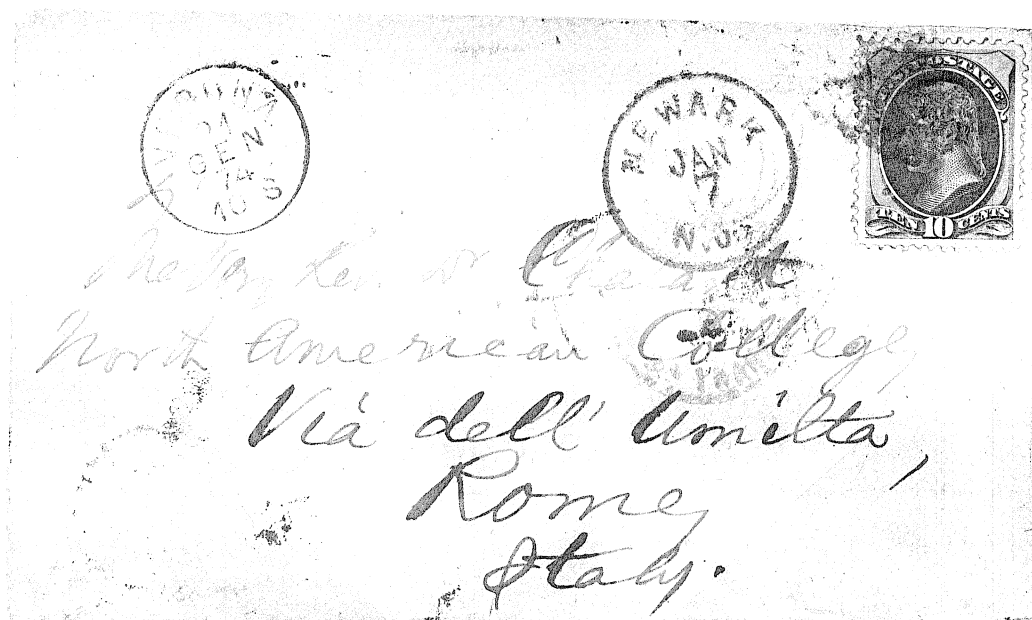 21
GEN
74
10 S
NEWARK
JAN
7
N.J.
POSTAGE
TEN 10 CENTS
The Very Rev. Dr. Chatard
North American College,
Via dell' Umilta,
Rome,
Italy.